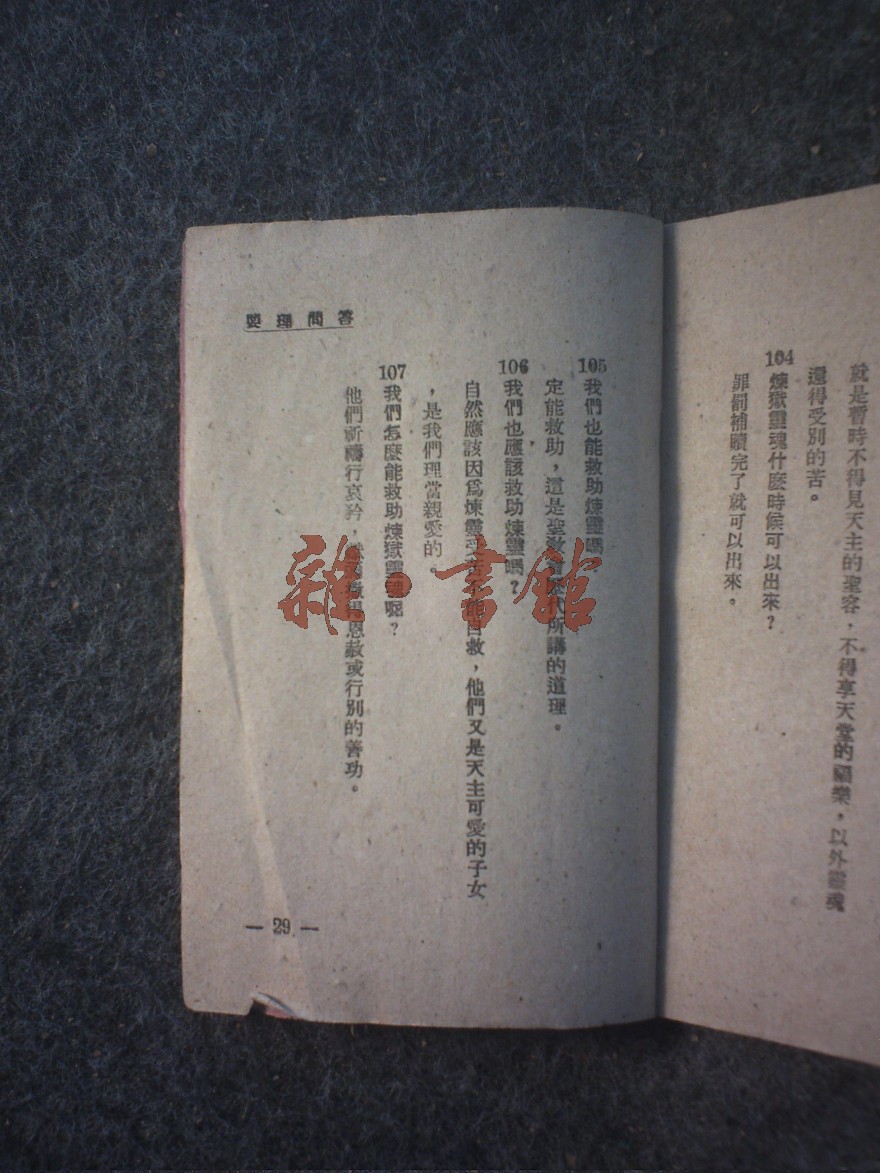 就是暫時不得見天主的聖容，不得享天堂的顧樂，以外靈魂
還得受別的苦。
104 煉獄靈魂什麽時候可以出來？
罪罰補贖完了就可以出來。
105 我們也能救助煉靈嗎
定能救助，這是聖教會歷代所講的道理。
106 我們也應該救助煉靈嗎？
自然應該因爲煉靈受苦不能自救，他們又是天主可愛的子女
，是我們理當親愛的。
107 我們怎麽能救助煉獄靈魂呢？
他們祈禱行哀矜，恩赦或行別的善功。
要理問答
— 29 —
雜·書館